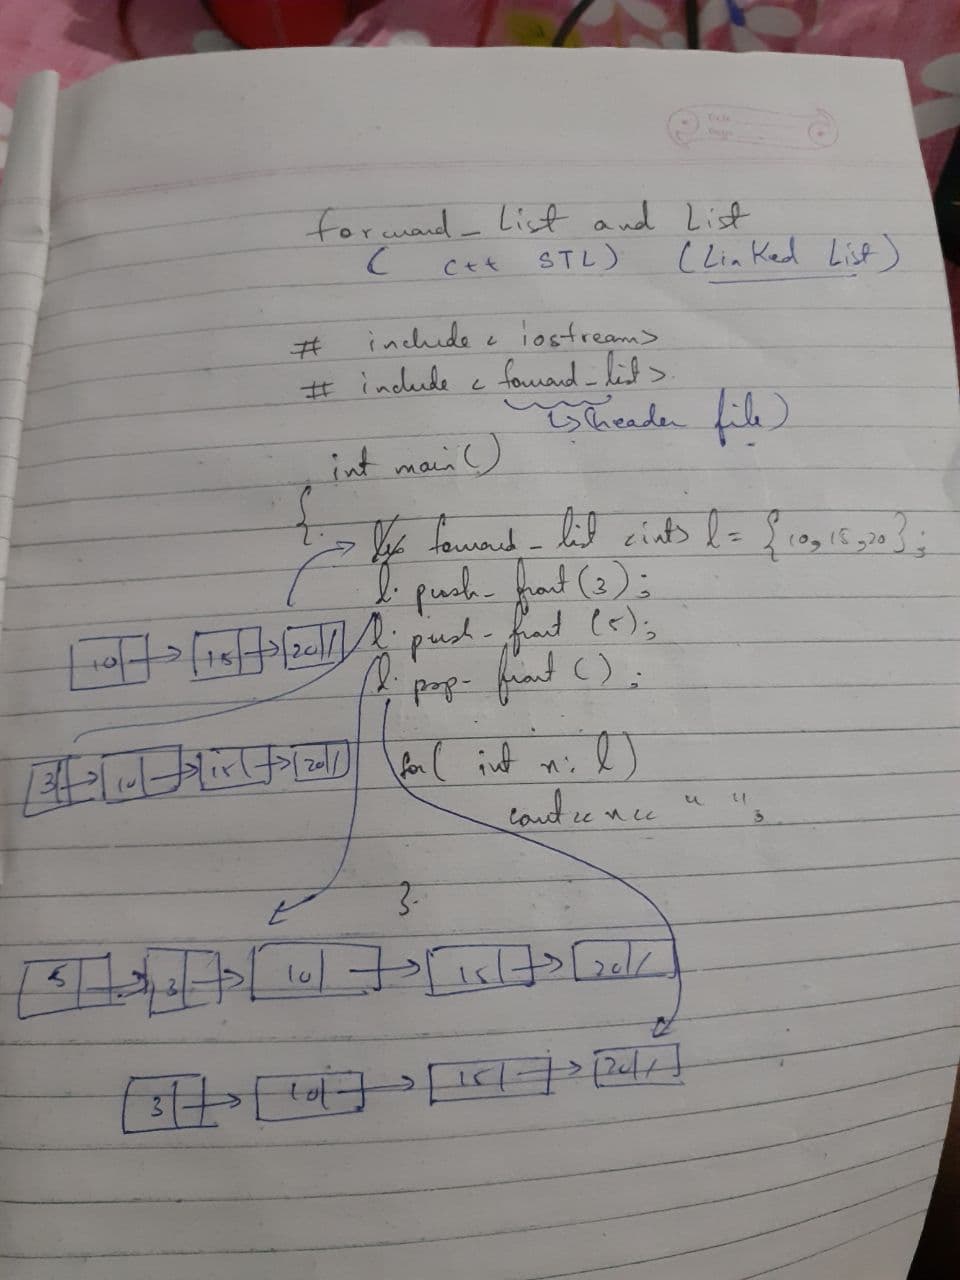 forward_List and List
( C++ STL) (Linked List)
# include < iostream>
# include < forward_list>
↳(header file)
int main()
{
forward_list <int> l = {10, 15, 20};
l. push_front (3);
l. push_front (5);
l. pop_front ();
10 → 15 → 20
3 → 10 → 15 → 20
for( int n: l)
cout << n << " ";
}
5 → 3 → 10 → 15 → 20
3 → 10 → 15 → 20